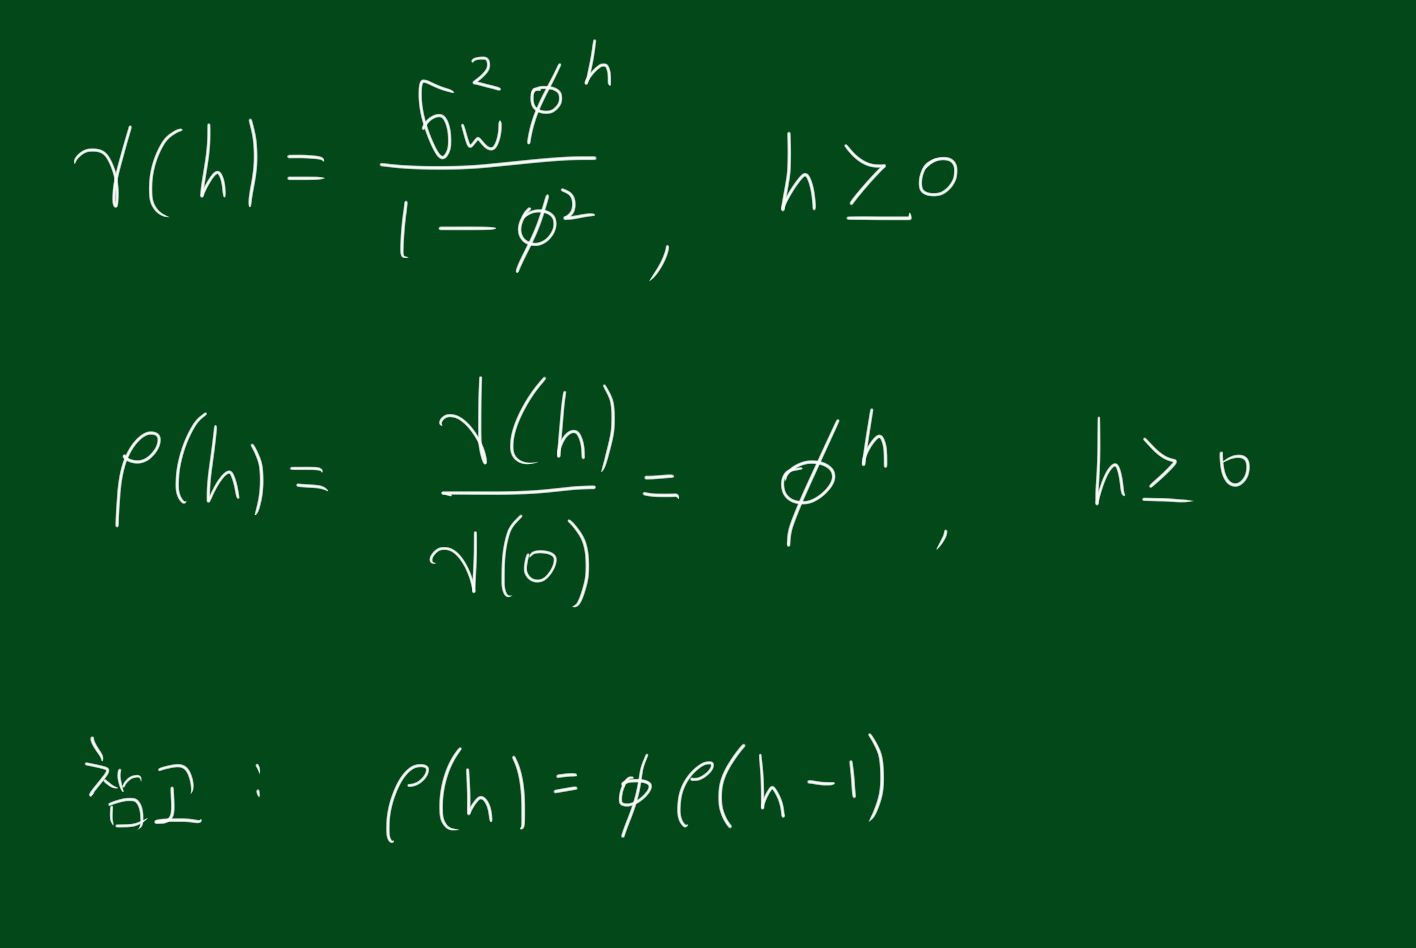 γ(h) = σ_w² φ^h / (1 − φ²) , h ≥ 0
ρ(h) = γ(h) / γ(0) = φ^h , h ≥ 0
참고 : ρ(h) = φ ρ(h−1)